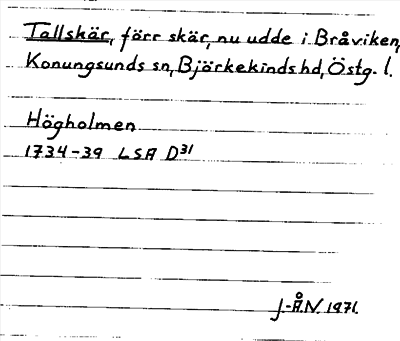 Tallskär, förr skär, nu udde i Bråviken,
Konungsunds sn, Björkekinds hd, Östg. l.
Högholmen
1734-39 LSA D³¹
J-Å.N. 1971.